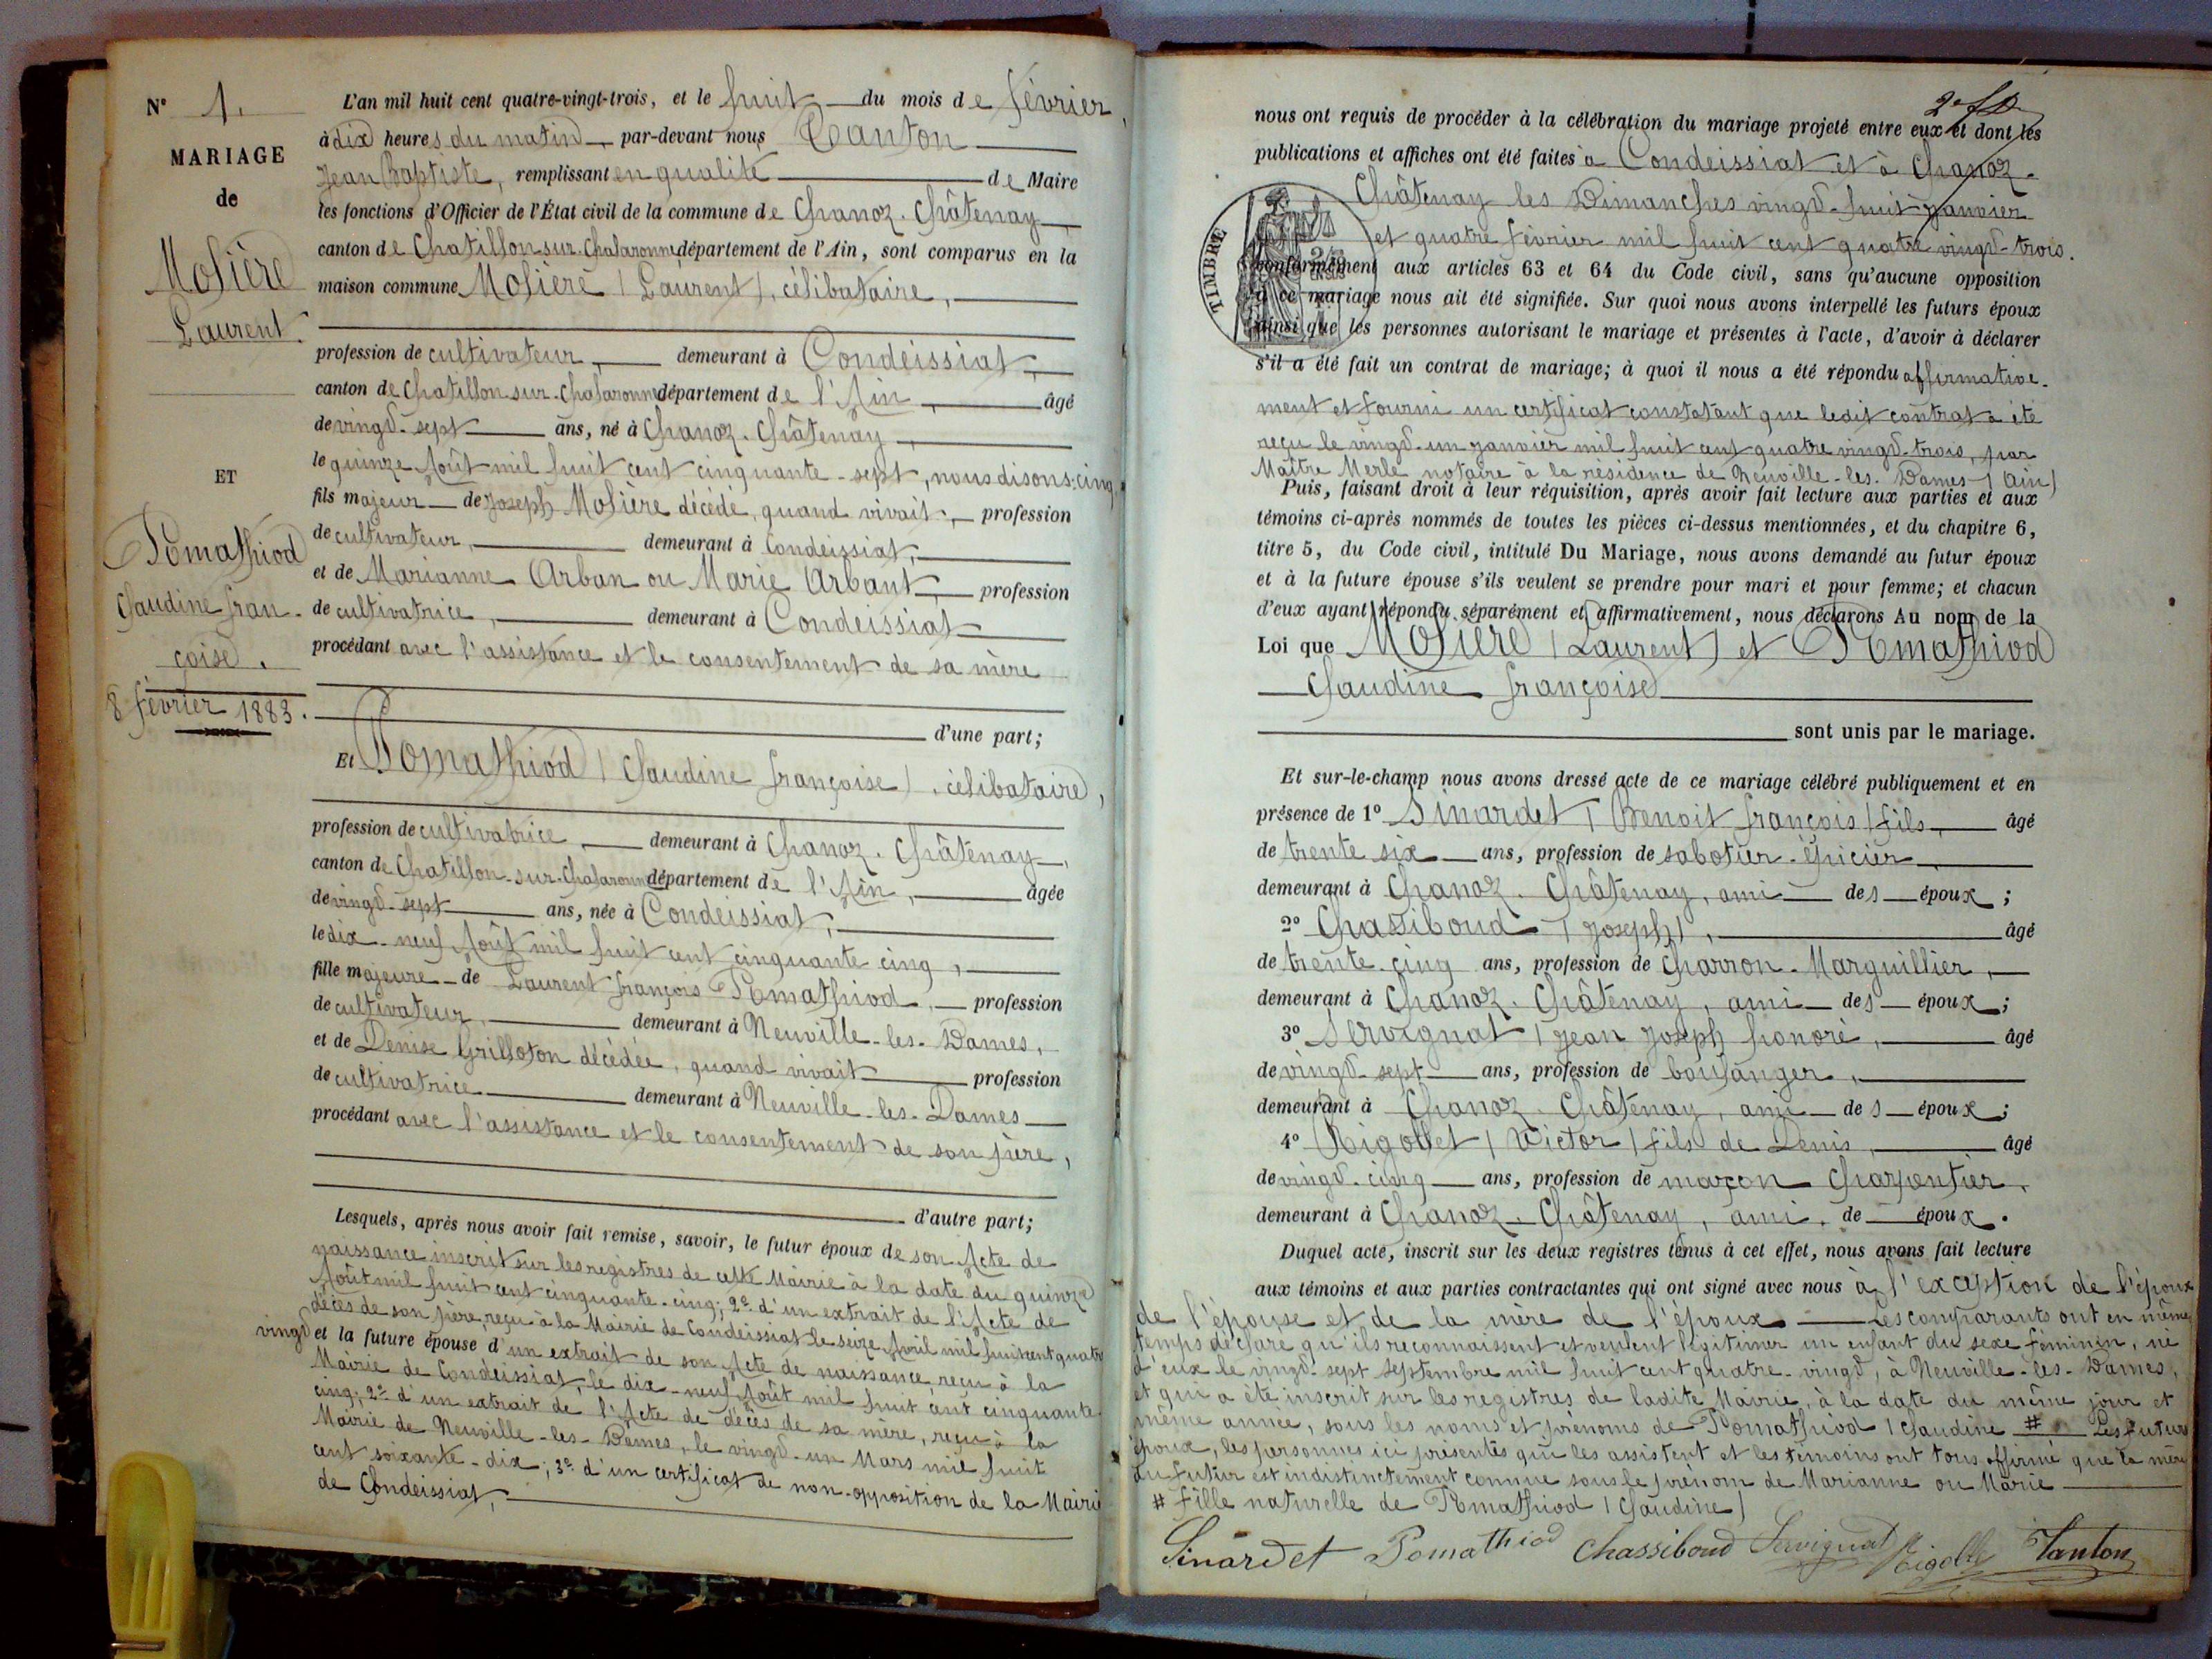 N° 1.
MARIAGE
de
Molière
Laurent.
ET
Pomathiod
Claudine Fran-
çoise.
8 février 1883.
L'an mil huit cent quatre-vingt-trois, et le huit du mois de février,
à dix heures du matin par-devant nous Tanton
Jean Baptiste, remplissant en qualité de Maire
les fonctions d'Officier de l'État civil de la commune de Chanoz-Châtenay,
canton de Chatillon-sur-Chalaronne département de l'Ain, sont comparus en la
maison commune Molière (Laurent), célibataire,
profession de cultivateur, demeurant à Condeissiat,
canton de Chatillon-sur-Chalaronne département de l'Ain, âgé
de vingt-sept ans, né à Chanoz-Châtenay,
le quinze Août mil huit cent cinquante-sept, nous disons: cinq,
fils majeur de Joseph Molière décédé, quand vivait, profession
de cultivateur, demeurant à Condeissiat,
et de Marianne Arban ou Marie Arbant, profession
de cultivatrice, demeurant à Condeissiat
procédant avec l'assistance et le consentement de sa mère
d'une part;
Et Pomathiod (Claudine françoise), célibataire,
profession de cultivatrice, demeurant à Chanoz-Châtenay,
canton de Chatillon-sur-Chalaronne département de l'Ain, âgée
de vingt-sept ans, née à Condeissiat,
le dix-neuf Août mil huit cent cinquante cinq,
fille majeure de Laurent françois Pomathiod, profession
de cultivateur, demeurant à Neuville-les-Dames,
et de Denise Grilloton décédée, quand vivait profession
de cultivatrice demeurant à Neuville-les-Dames
procédant avec l'assistance et le consentement de son père,
d'autre part;
Lesquels, après nous avoir fait remise, savoir, le futur époux de son Acte de
naissance inscrit sur les registres de cette Mairie à la date du quinze
Août mil huit cent cinquante-cinq; 2° d'un extrait de l'Acte de
décès de son père, reçu à la Mairie de Condeissiat le seize Avril mil huit cent quatre
vingt et la future épouse d'un extrait de son Acte de naissance, reçu à la
Mairie de Condeissiat, le dix-neuf Août mil huit cent cinquante
cinq; 2° d'un extrait de l'Acte de décès de sa mère, reçu à la
Mairie de Neuville-les-Dames, le vingt-un Mars mil huit
cent soixante-dix; 3° d'un certificat de non-opposition de la Mairie
de Condeissiat,
nous ont requis de procéder à la célébration du mariage projeté entre eux et dont les
publications et affiches ont été faites à Condeissiat et à Chanoz-
Châtenay les Dimanches vingt-huit janvier
et quatre février mil huit cent quatre vingt-trois.
TIMBRE
conformément aux articles 63 et 64 du Code civil, sans qu'aucune opposition
à ce mariage nous ait été signifiée. Sur quoi nous avons interpellé les futurs époux
ainsi que les personnes autorisant le mariage et présentes à l'acte, d'avoir à déclarer
s'il a été fait un contrat de mariage; à quoi il nous a été répondu affirmative-
ment et fourni un certificat constatant que ledit contrat a été
reçu le vingt-un janvier mil huit cent quatre vingt-trois, par
Maître Merle notaire à la résidence de Neuville-les-Dames (Ain)
Puis, faisant droit à leur réquisition, après avoir fait lecture aux parties et aux
témoins ci-après nommés de toutes les pièces ci-dessus mentionnées, et du chapitre 6,
titre 5, du Code civil, intitulé Du Mariage, nous avons demandé au futur époux
et à la future épouse s'ils veulent se prendre pour mari et pour femme; et chacun
d'eux ayant répondu séparément et affirmativement, nous déclarons Au nom de la
Loi que Molière (Laurent) et Pomathiod
Claudine françoise
sont unis par le mariage.
Et sur-le-champ nous avons dressé acte de ce mariage célébré publiquement et en
présence de 1° Sinardet (Benoit françois) fils, âgé
de trente six ans, profession de sabotier-épicier
demeurant à Chanoz-Châtenay, ami des époux;
2° Chassiboud (Joseph), âgé
de trente-cinq ans, profession de Charron-Marguillier,
demeurant à Chanoz-Châtenay, ami des époux;
3° Servignat (Jean Joseph honoré, âgé
de vingt-sept ans, profession de boulanger,
demeurant à Chanoz-Châtenay, ami des époux;
4° Rigollet (Victor) fils de Denis, âgé
de vingt-cinq ans, profession de maçon Charpentier,
demeurant à Chanoz-Châtenay, ami, de époux.
Duquel acte, inscrit sur les deux registres tenus à cet effet, nous avons fait lecture
aux témoins et aux parties contractantes qui ont signé avec nous à l'exception de l'époux
de l'épouse et de la mère de l'époux Les comparants ont en même
temps déclaré qu'ils reconnaissent et veulent légitimer un enfant du sexe féminin, né
d'eux le vingt-sept septembre mil huit cent quatre-vingt, à Neuville-les-Dames,
et qui a été inscrit sur les registres de ladite Mairie, à la date du même jour et
même année, sous les noms et prénoms de Pomathiod (Claudine # Les futurs
époux, les personnes ici présentes qui les assistent et les témoins ont tous affirmé que la mère
du futur est indistinctement connue sous le prénom de Marianne ou Marie
# fille naturelle de Pomathiod (Claudine)
Sinardet Pomathiod Chassiboud Servignat Rigollet Tanton